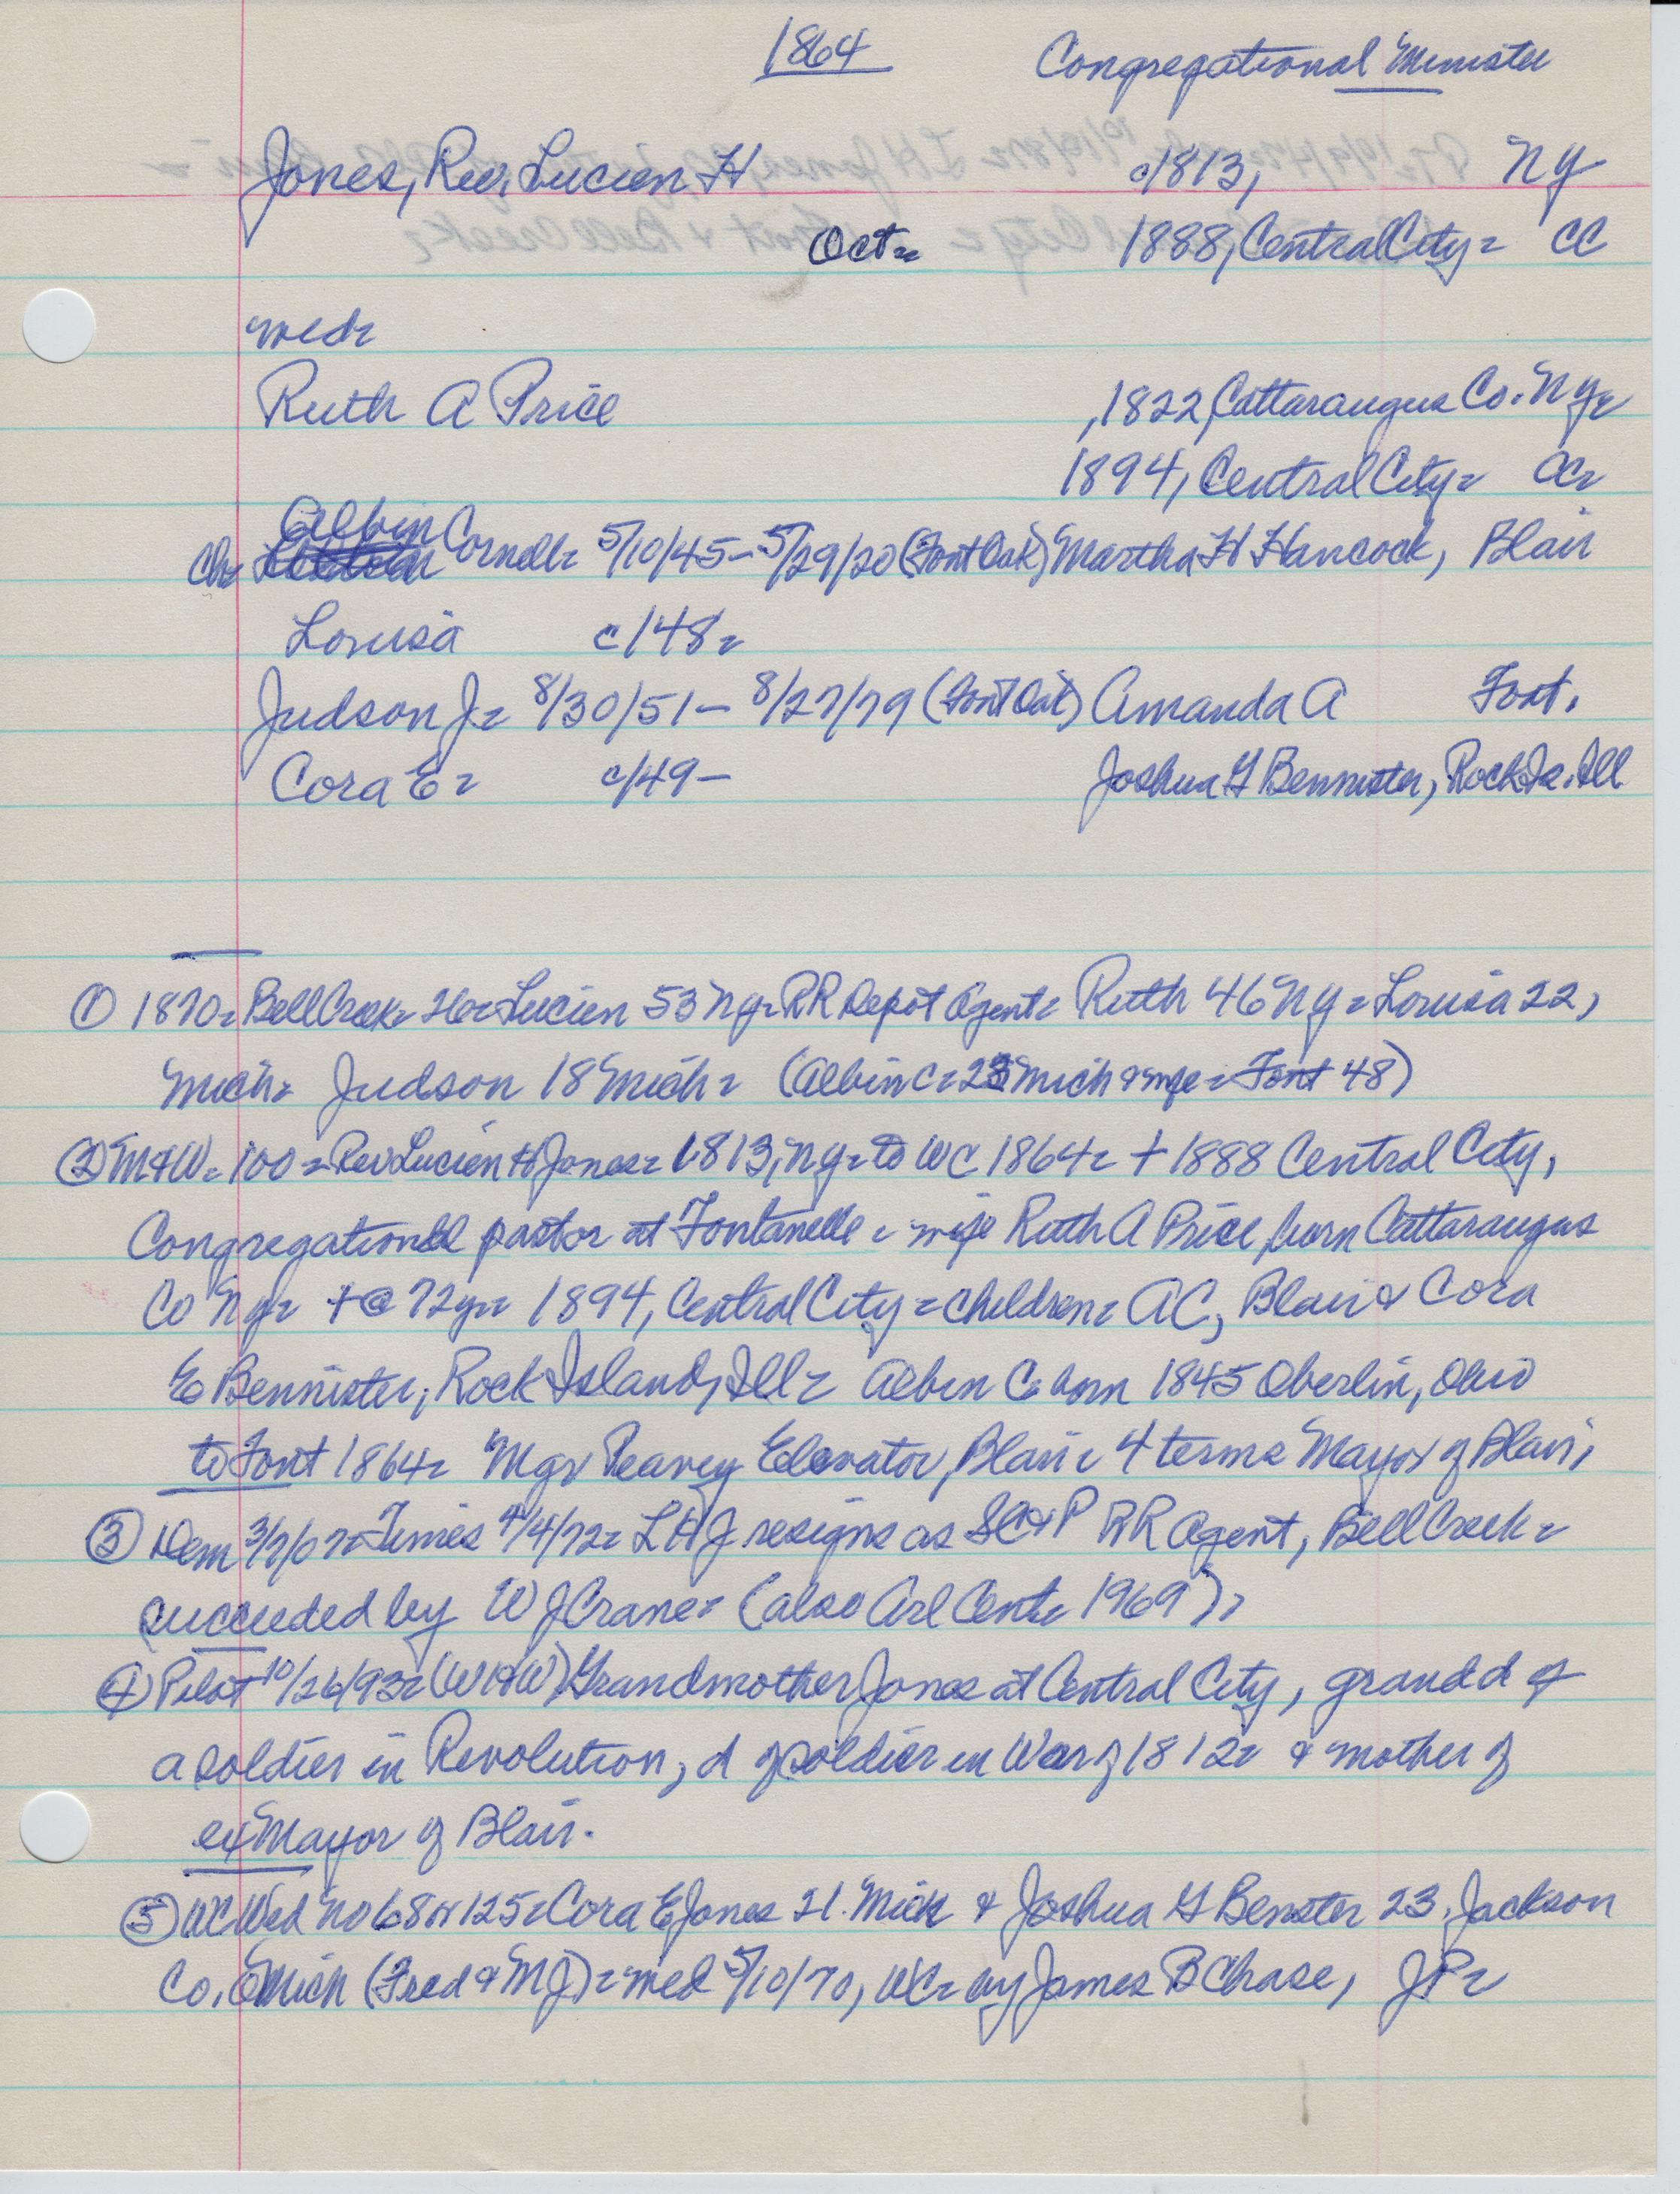 1864 Congregational Minister
Jones, Rev. Lucien H c/1813, NY
Oct= 1888, Central City= CC
med=
Ruth A Price , 1822, Cattaraugus Co. NY=
1894, Central City= CC=
Albin
Ch= Cornell= 5/10/45 - 5/29/20 (Font Oak) Martha H Hancock, Blair
Lousia c/48=
Judson J= 8/30/51 - 8/27/79 (Font Oak) Amanda A Font.
Cora E= c/49 - Joshua G Bennister, Rock Is. Ill
① 1870= Bell Creek= 26= Lucien 53 NY= RR Depot Agent= Ruth 46 NY= Lousia 22,
Mich= Judson 18 Mich= (Albin C= 25 Mich & wife= Font 48)
② M&W= 100= Rev Lucien H Jones= 1813, NY= to WC 1864= + 1888 Central City,
Congregational pastor at Fontanelle= wife Ruth A Price born Cattaraugus
Co NY= + @ 72yr= 1894, Central City= children= AC, Blair & Cora
E Bennister, Rock Island, Ill= Albin C born 1845 Oberlin, Ohio
to Font 1864= Mgr Peavey Elevator, Blair= 4 terms Mayor of Blair,
③ Dem 3/7/07= Times 4/4/72= LHJ resigns as SC&P RR Agent, Bell Creek=
succeeded by W J Crane= (also Arl Cent= 1969)=
④ Pilot 10/26/93= (WHW) Grandmother Jones at Central City, grand d of
a soldier in Revolution, d of soldier in War of 1812= & mother of
ex Mayor of Blair.
⑤ WC Wed No 68 or 125= Cora E Jones 21. Mich & Joshua G Benster 23, Jackson
Co, Mich (Fred & MJ)= med 5/10/70, WC= by James B Chase, JP=